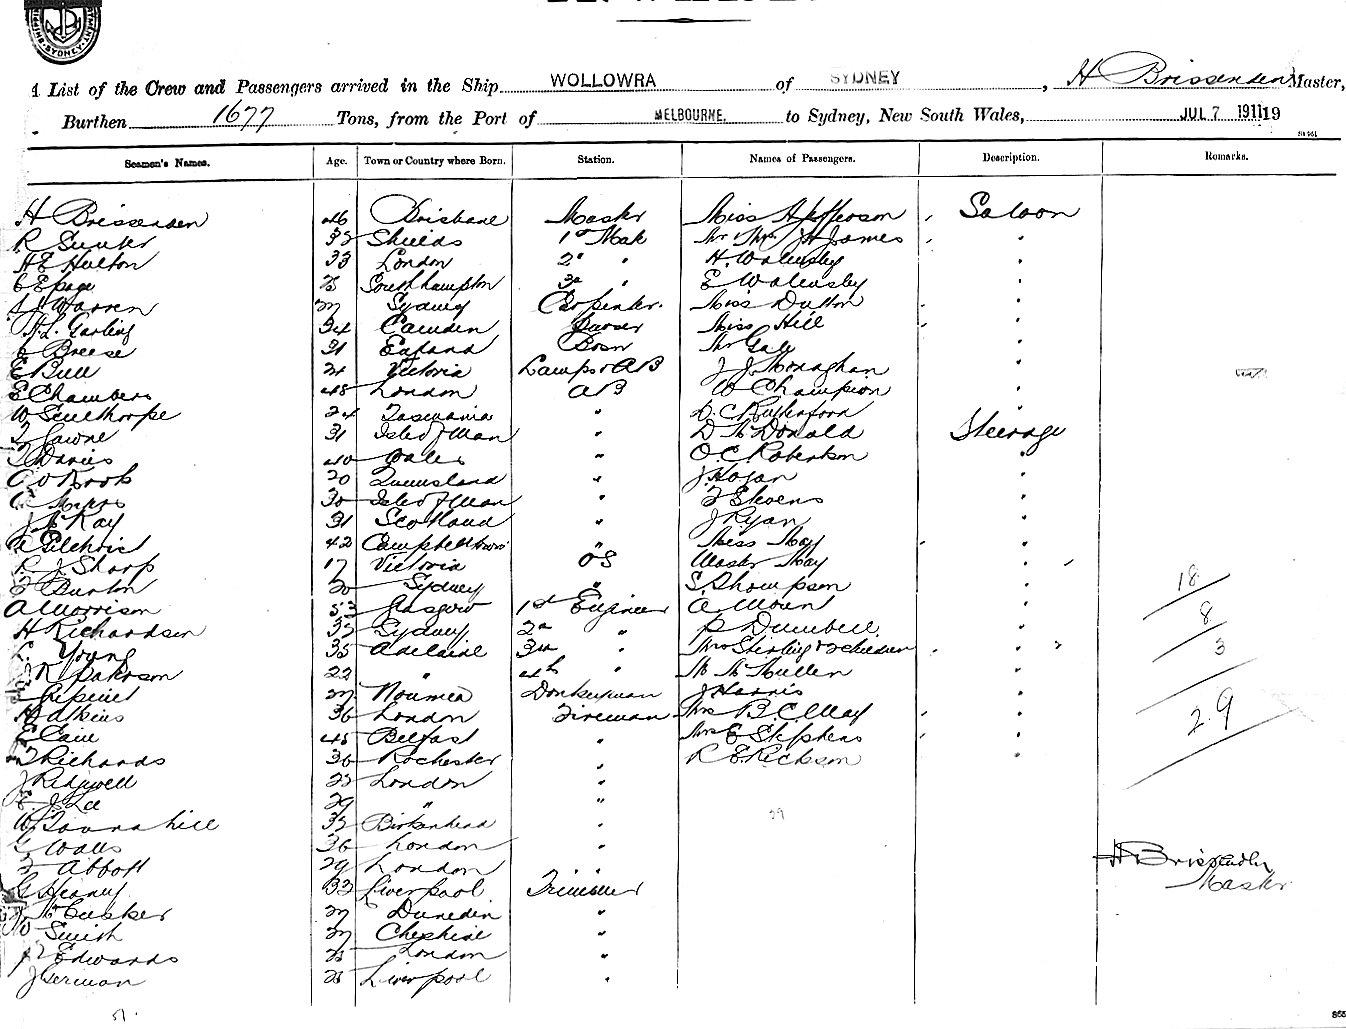 SHIPPING · SYDNEY
A List of the Crew and Passengers arrived in the Ship WOLLOWRA of SYDNEY, H Brissenden Master,
Burthen 1677 Tons, from the Port of MELBOURNE to Sydney, New South Wales, JUL 7 1911 19
Seamen's Names. Age. Town or Country where Born. Station. Names of Passengers. Description. Remarks.
H Brissenden 46 Brisbane Master Miss A Jefferson Saloon
R 33 Shields 1st Mate Mr & Mrs J H James "
H E Hulton 33 London 2d " H. Walmsley "
C E Epage 25 Southampton 3d " E Walmsley "
Warren 27 Sydney Carpenter Miss Dutton "
H. L. Garling 34 Camden Purser Miss Hill "
Breese 31 England Bosn Mr Gale "
E Bull 21 Victoria Lamps & AB J J Monaghan "
E Chambers 48 London AB W Champion "
W Sculthorpe 24 Tasmania " D. C. Rutherford "
31 Isle of Man " D McDonald Steerage
Davies 40 Wales " O. C. Robertson "
20 Queensland " J Hogan "
30 Isle of Man " F Stevens "
J McKay 31 Scotland " J Ryan "
A Gilchrist 42 Campbelltown " Miss May "
R J Sharp 17 Victoria OS Master May "
F Burton 20 Sydney " S. Thompson " 18
A Morrison 53 Glasgow 1st Engineer A. Mount " 8
H Richardson 33 Sydney 2d " P Dumbell "
L. Young 35 Adelaide 3rd " Mrs Stirling & 2 children " 3
R Paterson 22 " 4th " W McMullen "
27 Noumea Donkeyman J Harris "
H Atkins 36 London Fireman Mrs B. C. May " 29
E Cain 45 Belfast " Mrs E Stephens "
T Richards 36 Rochester " R Erickson "
J Ridgwell 23 London "
E. J. Lee 29 " "
W Tannahill 33 Birkenhead " 29
G Watts 36 London "
F Abbott 29 London " H Brissenden
G Heaney 33 Liverpool Trimmer Master
McCusker 27 Dunedin "
27 Cheshire "
J Edwards 25 London "
J German 25 Liverpool "
51.